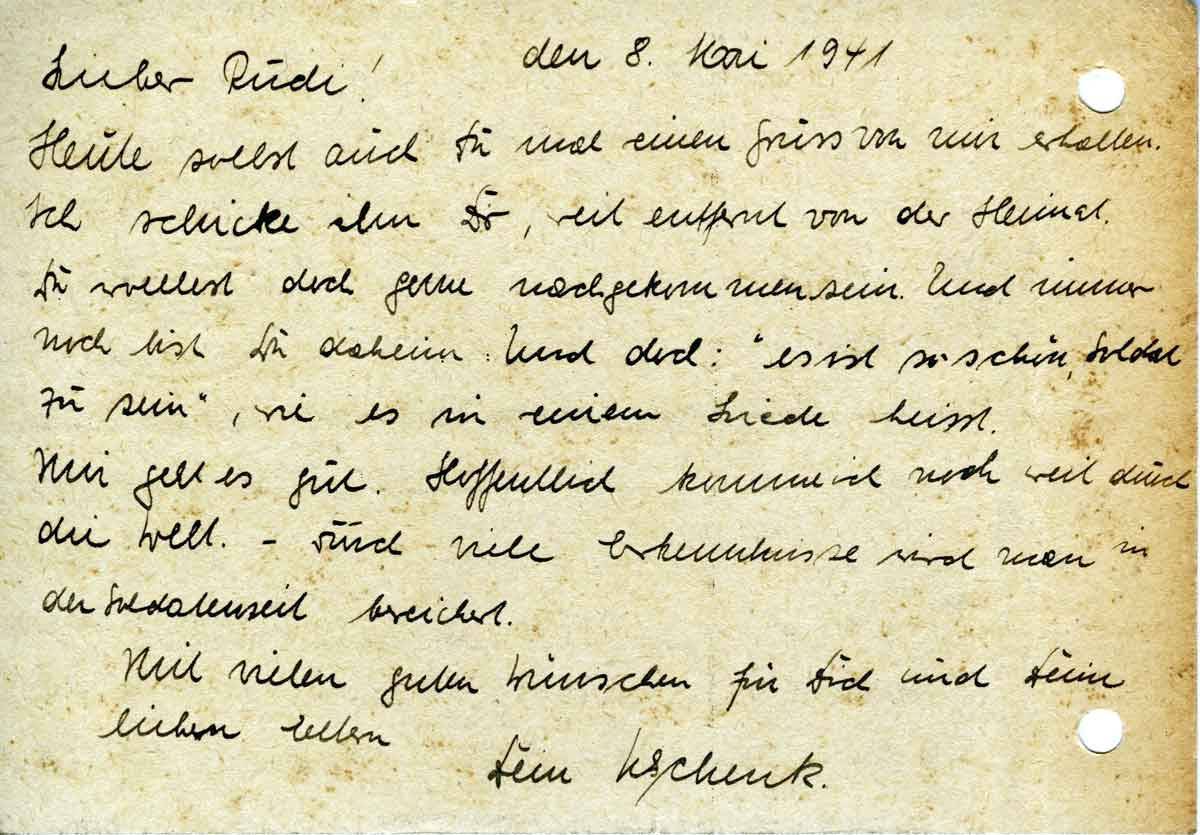 den 8. Mai 1941
Lieber Rudi!
Heute sollst auch Du mal einen Gruss von mir erhalten.
Ich schicke ihn Dir, weit entfernt von der Heimat.
Du wolltest doch gerne nachgekommen sein. Und immer
noch bist Du daheim. Und doch: "es ist so schön, Soldat
zu sein", wie es in einem Liede heisst.
Mir geht es gut. Hoffentlich komme ich noch weit durch
die Welt. - Durch viele Erkenntnisse wird man in
der Soldatenzeit bereichert.
Mit vielen guten Wünschen für Dich und Deine
lieben Eltern
Dein